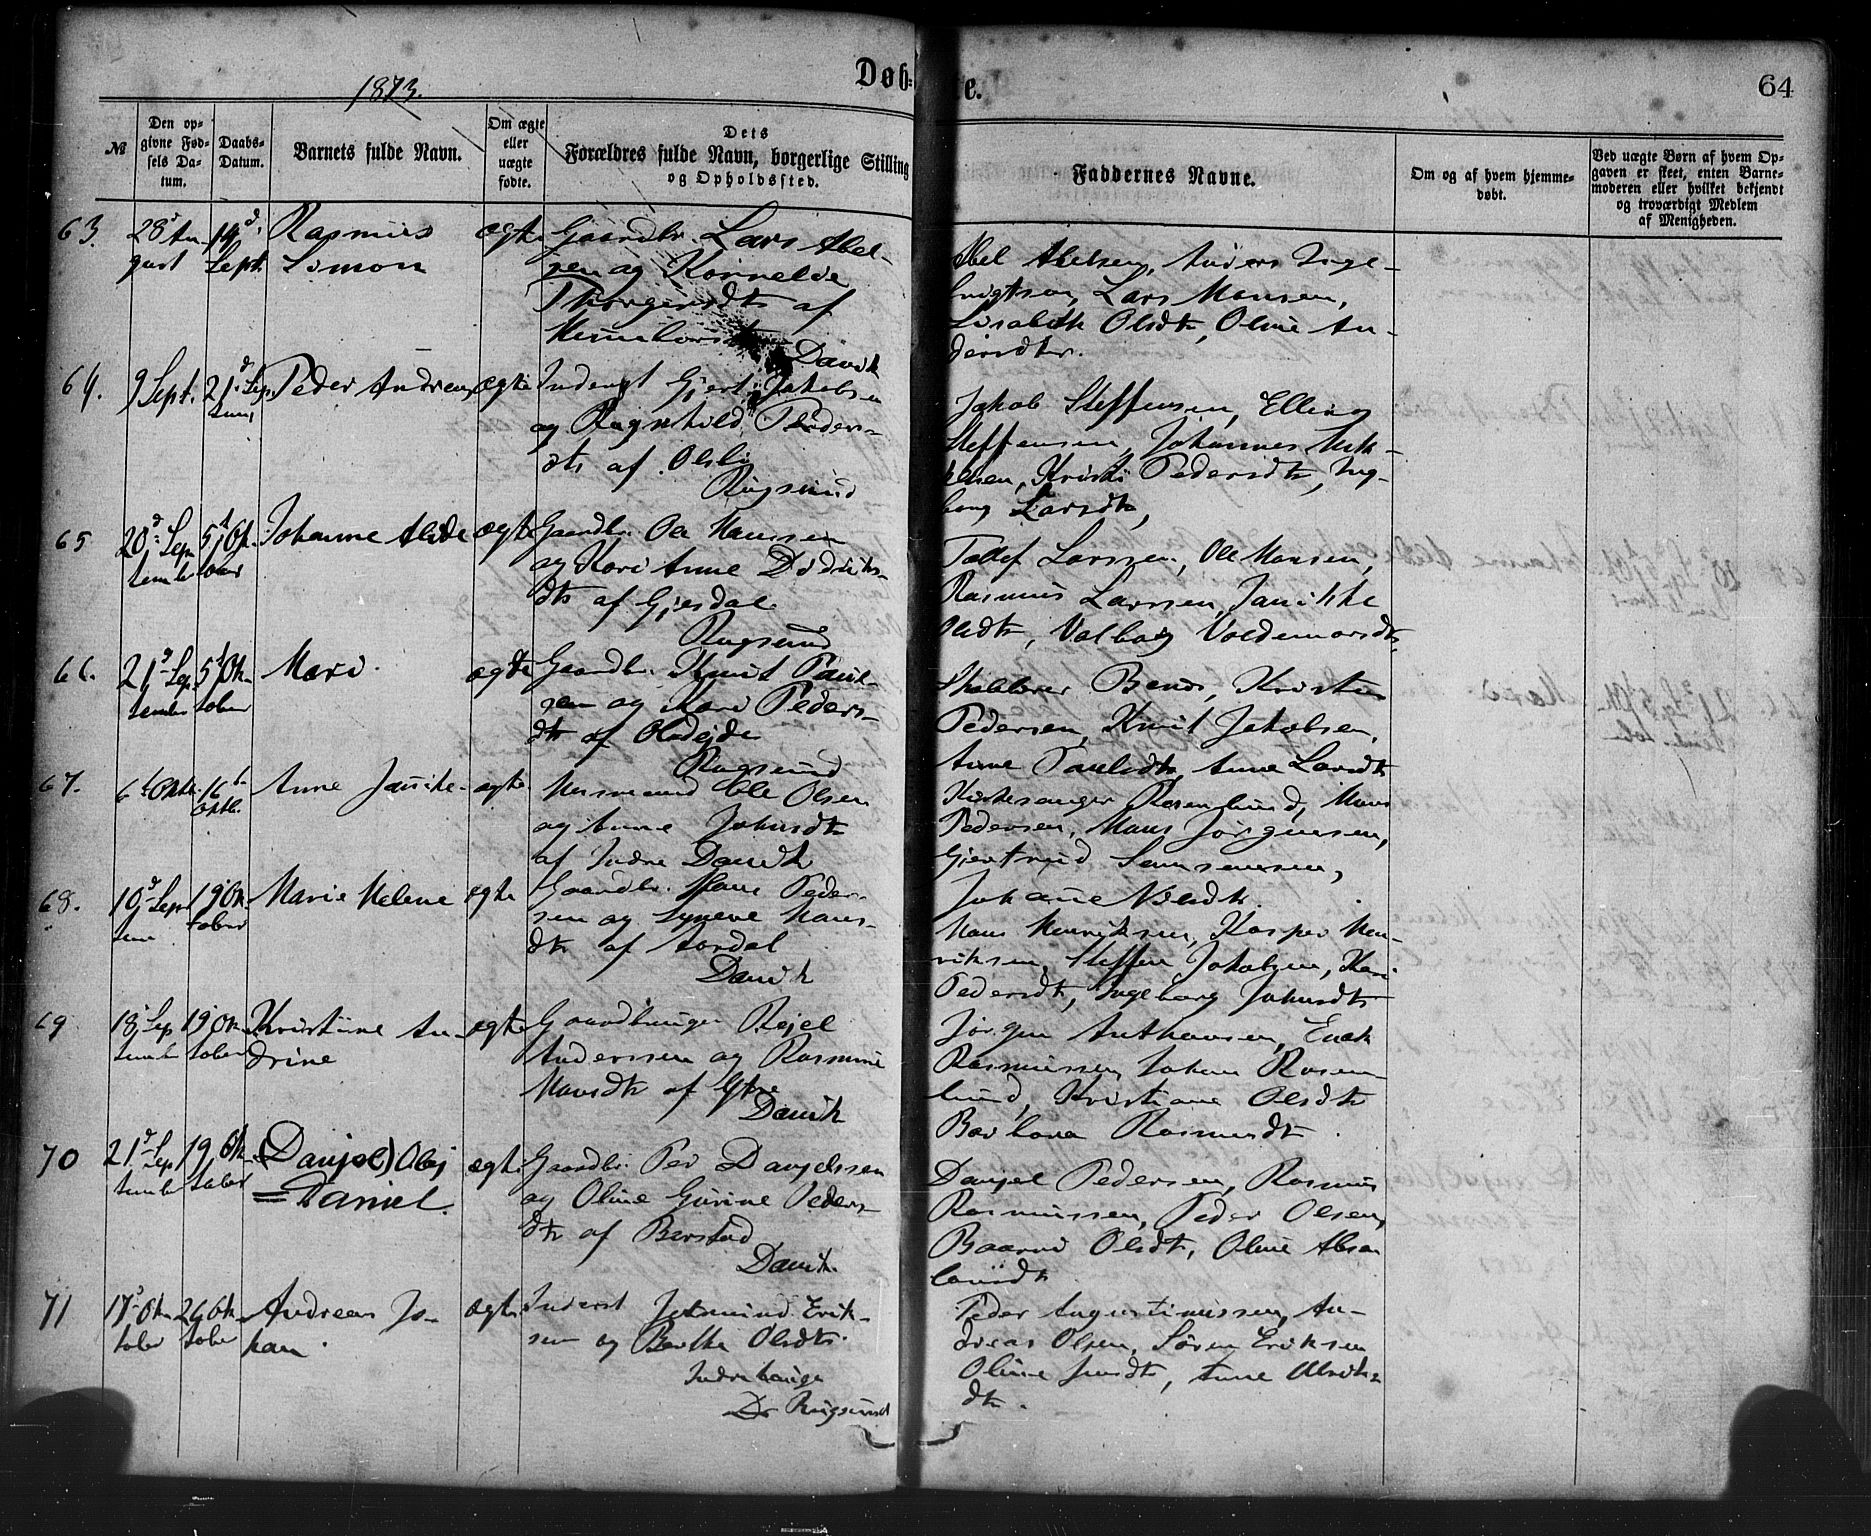 1873.
Døb=te.
64
№
Den op-
givne Fød-
sels Da-
tum.
Daabs-
Datum.
Barnets fulde Navn.
Om ægte
eller
uægte
fødte.
Dets
Forældres fulde Navn, borgerlige Stilling
og Opholdssted.
Faddernes Navne.
Om og af hvem hjemme-
døbt.
Ved uægte Børn af hvem Op-
gaven er skeet, enten Barne-
moderen eller hvilket bekjendt
og troværdigt Medlem
af Menigheden.
63.
28 Au-
gust
14d.
Sept.
Rasmus
Simon
ægte
Gaardbr. Lars Abel-
sen og Kornelie
Thorgersdtr af
Davik
Abel Abelsen, Anders Inge-
brigtsen, Lars Monsen,
Lisabeth Olsdtr, Oline An-
dersdtr.
64.
9 Sept.
21d Sep
Peder Andreas
ægte
Inderst Gjert Jakobsen
og Ragnhild Peders-
dtr af Olsli
Rugsund
Jakob Steffensen, Elling
Steffensen, Johannes Mik-
kelsen, Kristi Pedersdtr, Ing-
borg Larsdtr,
65
20d Sep
tembr
5t Ok
tober
Johanne
ægte
Gaardbr. Ole Monsen
og Kari Anne Didriks-
dtr af Gjesdal.
Rugsund
Tollef Larssen, Ole Monsen,
Rasmus Larssen, Janikke
Olsdtr, Valborg Voldemarsdtr
66.
21d Sep
tember
5t Ok-
tober
Mari.
ægte
Gaardbr. Knut Paul-
sen og Kari Peders-
dtr af
Rugsund
Bends, Kristen
Pedersen, Knut Jakobsen,
Anne Paulsdtr, Anne Larsdtr
67.
6t Oktb.
16t
Oktb.
Anne Janike
ægte
Husmand Ole Olsen
og Anne Johnsdtr
af Indre Davik
Kirkesanger Rosenlund, Mons
Pedersen, Hans Jørgensen,
Gjertrud
Johanne Nilsdtr.
68.
10d Sep
tem
19 Ok-
tober
Marie Helene
ægte
Gaardbr. Hans Peder-
sen og Synneve Hans-
dtr af Aardal
Davik
Hans Henriksen, Kasper Hen-
riksen, Steffen Jakobsen, Kari
Pedersdtr, Ingeborg Johnsdtr
69
18 Sep
tembr
19 Ok
tober
Kristine An-
drine
ægte
Gaardbruger Rejel
Anderssen og Rasmine
Monsdtr af Ytre
Davik
Jørgen Anthonsen, Enok
Rasmussen, Johan Rosen-
lund, Kristiane Olsdtr
Barbara Rasmusdtr.
70
21d Sep
tembr
19 Ok-
tober
(Danjel) Olaj
= Daniel.
ægte
Gaardbr. Per Danjelssen
og Oline Gurine Peders-
dtr af Berstad
Davik.
Danjel Pedersen, Rasmus
Rasmussen, Peder Olsen,
Olsdtr, Oline Absa
lonsdtr
71
17d Ok-
tober
26 Ok-
tober
Andreas Jo-
han.
ægte
Inderst Jetmund Erik-
sen og Berthe Olsdtr.
Indrehauge
Dr Rugsund
Peder Augustinussen, An-
dreas Olsen, Søren Eriksen
Oline Jensdtr, Anne Olriks-
dtr.